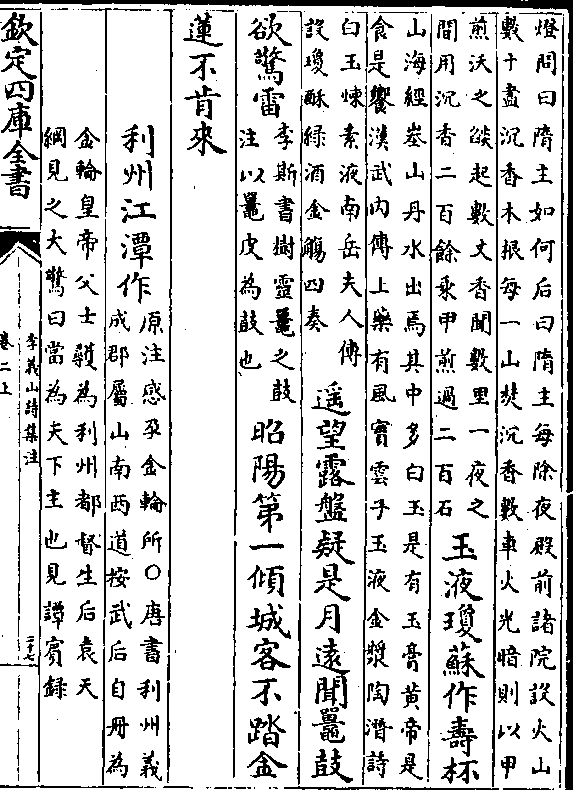 燈問曰隋主如何后曰隋主每除夜殿前諸院設火山
數十盡沉香木根每一山焚沉香數車火光暗則以甲
煎沃之燄起數丈香聞數里一夜之
間用沉香二百餘乘甲煎過二百石
玉液瓊蘇作壽杯
山海經峚山丹水出焉其中多白玉是有玉膏黄帝是
食是饗漢武内傳上藥有風實雲子玉液金漿陶潛詩
白玉凍素液南岳夫人傳
設瓊酥緑酒金觴四奏
遥望露盤疑是月遠聞鼉鼓
欲驚雷
李斯書樹靈鼉之鼓
注以鼉皮為鼓也
昭陽第一傾城客不踏金
蓮不肯來
利州江潭作
原注感孕金輪所○唐書利州義
成郡屬山南西道按武后自冊為
金輪皇帝父士彠為利州都督生后袁天
綱見之大驚曰當為天下主也見譚賓録
欽定四庫全書
李義山詩集注
卷二上
二十七